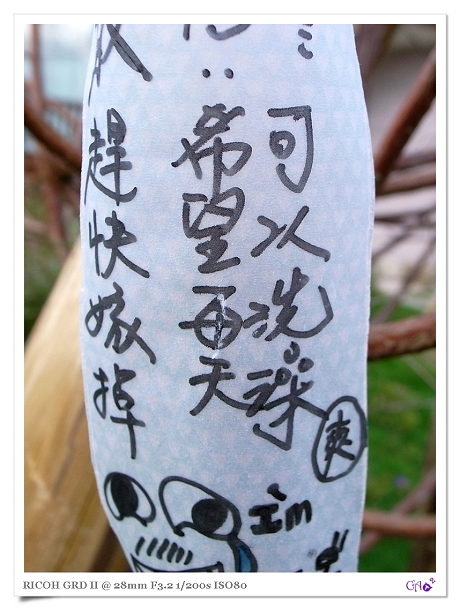 趕快嫁掉
希望每天
可以洗澡
爽
I'm
RICOH GRD II @ 28mm F3.2 1/200s ISO80